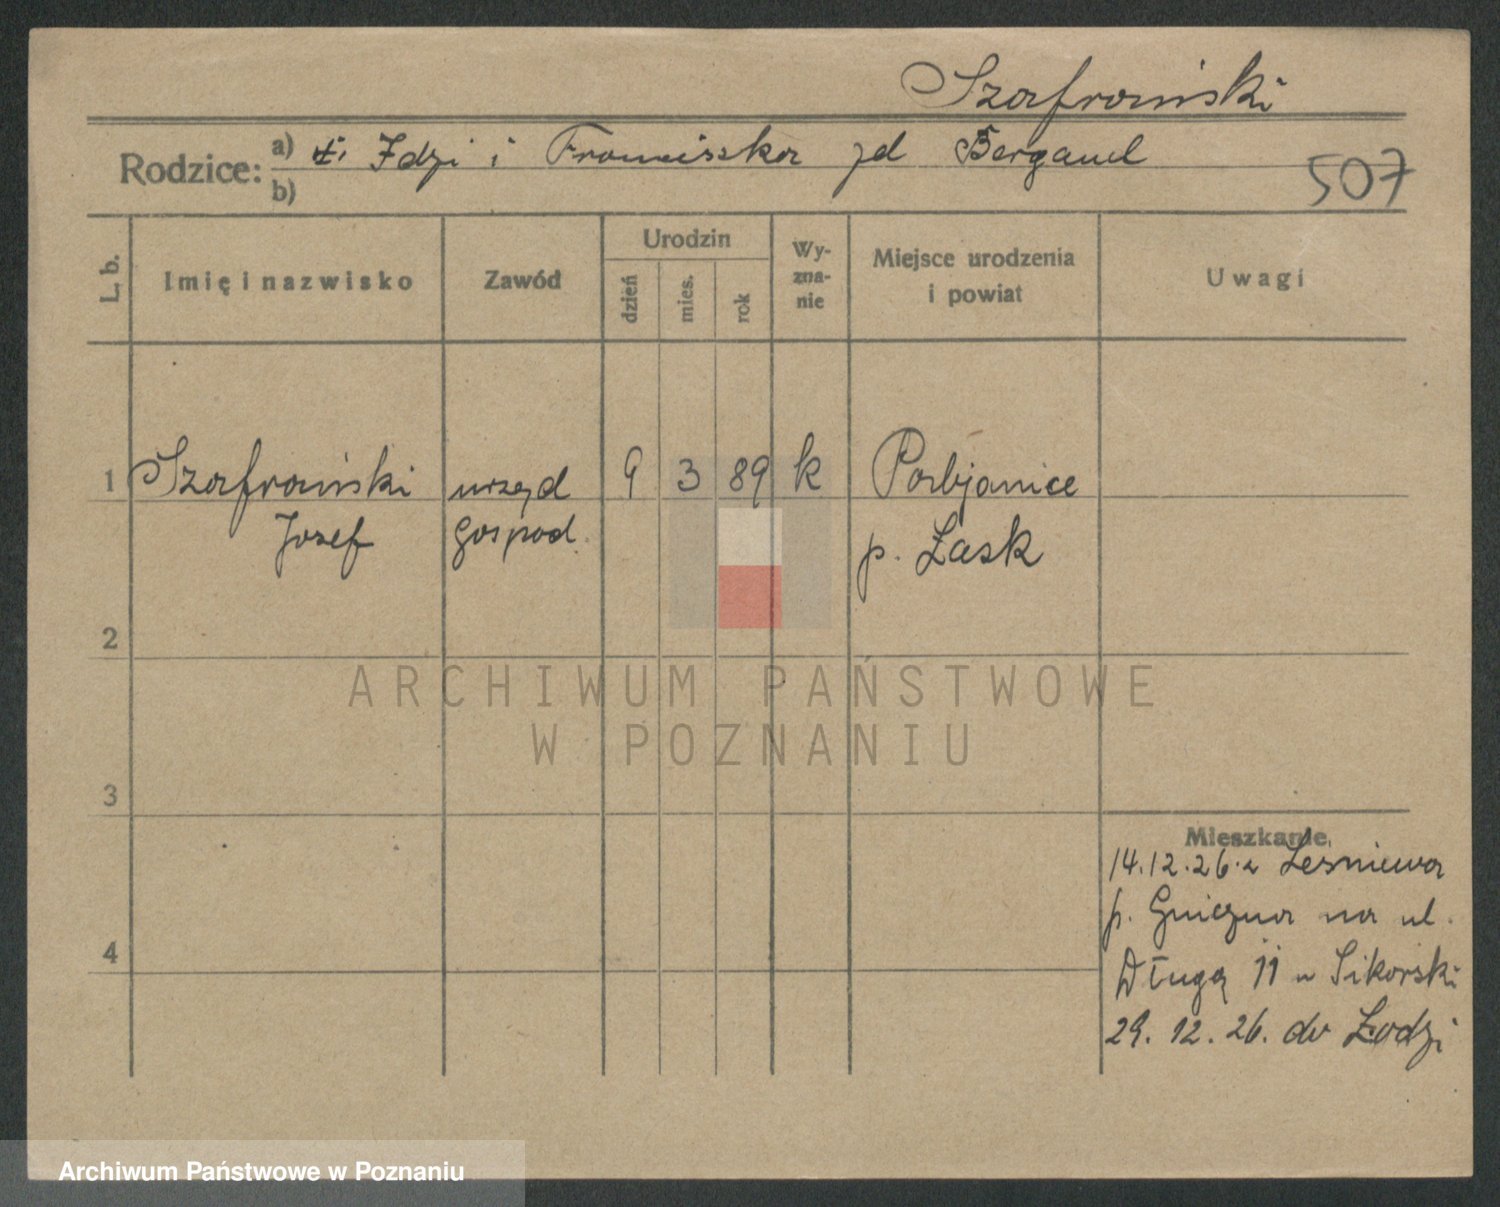 Szafrański
Rodzice: a) Idzi i Franciszka zd Bergand
b)
507
L. b. Imię i nazwisko Zawód Urodzin dzień mies. rok Wy-zna-nie Miejsce urodzenia i powiat Uwagi
1 Szafrański urzęd 9 3 89 k Pabjanice
Jozef gospod. p. Łask
2
ARCHIWUM PAŃSTWOWE
W POZNANIU
3
Mieszkanie
14.12.26 z Leśniewa
p. Gniezna na ul.
4
Długą 11 u Sikorski
29. 12. 26. do Łodzi
Archiwum Państwowe w Poznaniu